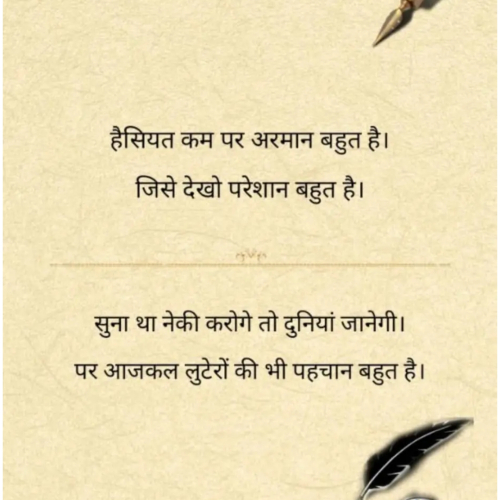 हैसियत कम पर अरमान बहुत है।
जिसे देखो परेशान बहुत है।
सुना था नेकी करोगे तो दुनियां जानेगी।
पर आजकल लुटेरों की भी पहचान बहुत है।